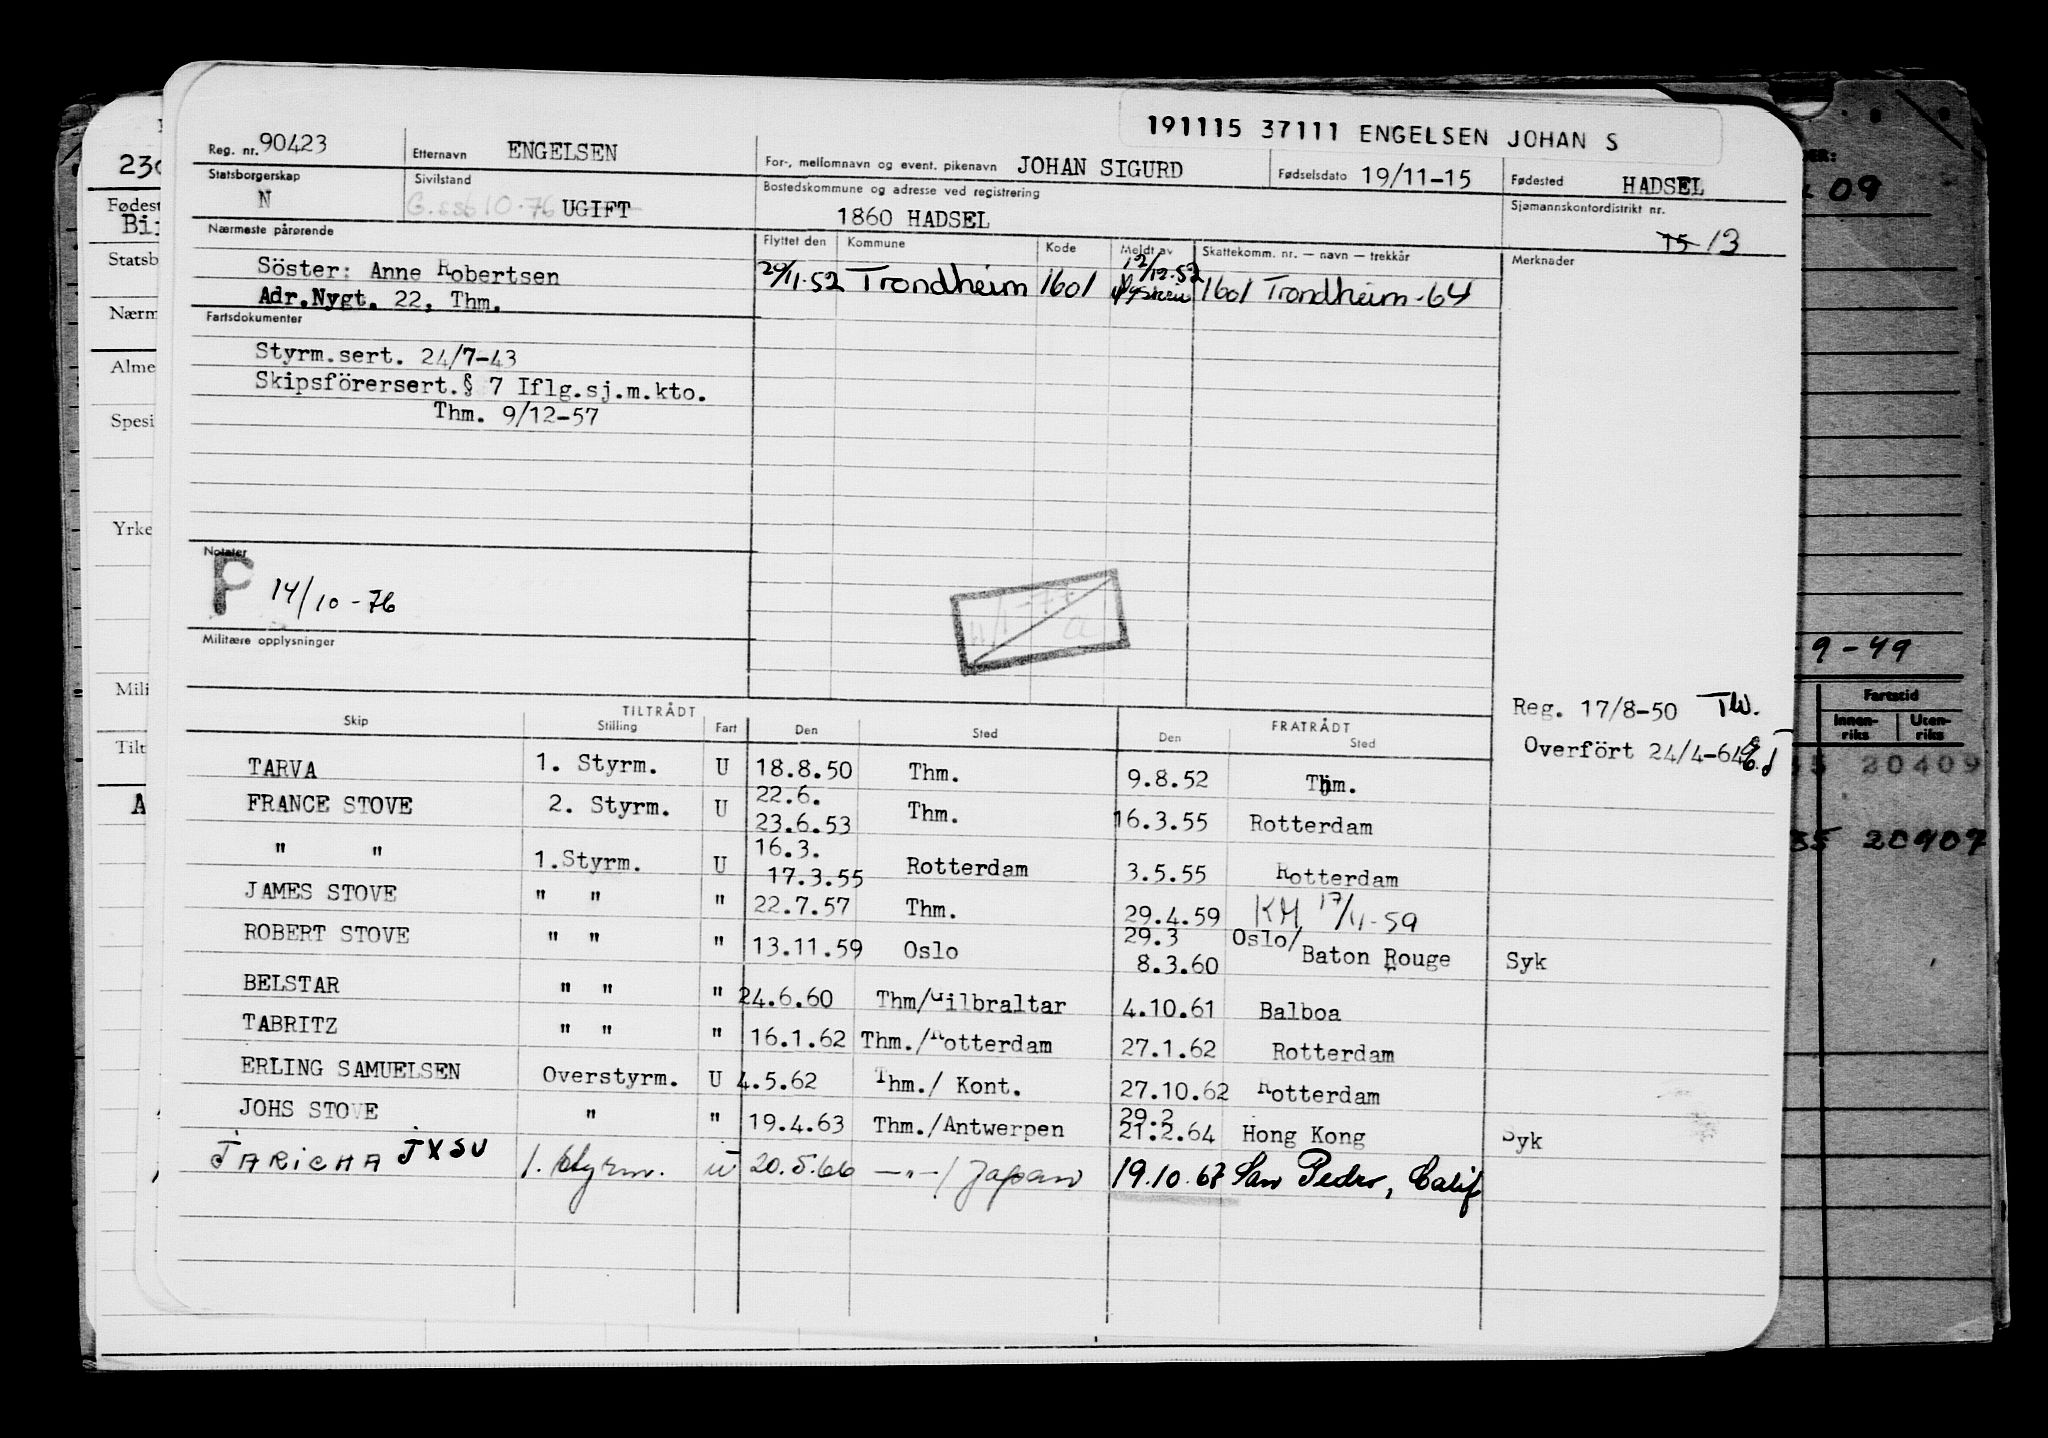 191115 37111 ENGELSEN JOHAN S
Reg. nr. 90423 Etternavn ENGELSEN For-, mellomnavn og event. pikenavn JOHAN SIGURD Fødselsdato 19/11-15 Fødested HADSEL
Statsborgerskap N Sivilstand UGIFT Bostedskommune og adresse ved registrering 1860 HADSEL Sjømannskontordistrikt nr. 15 13
Nærmeste pårørende Flyttet den Kommune Kode Meldt av Skattekomm. nr. — navn — trekkår Merknader
Söster: Anne Robertsen 29/11.52 Trondheim 1601 12/12.52 1601 Trondheim-64
Adr.Nygt. 22, Thm.
Fartsdokumenter
Styrm.sert. 24/7-43
Skipsförersert.§ 7 Iflg.sj.m.kto.
Thm. 9/12-57
Notater
F 14/10-76
Militære opplysninger
Reg. 17/8-50
Overfört 24/4-64
TILTRÅDT FRATRÅDT
Skip Stilling Fart Den Sted Den Sted
TARVA 1. Styrm. U 18.8.50 Thm. 9.8.52 Thm.
FRANCE STOVE 2. Styrm. U 22.6. 23.6.53 Thm. 16.3.55 Rotterdam
" " 1.Styrm. U 16.3. 17.3.55 Rotterdam 3.5.55 Rotterdam
JAMES STOVE " " " 22.7.57 Thm. 29.4.59 KM 17/11-59
ROBERT STOVE " " " 13.11.59 Oslo 29.3 8.3.60 Oslo/ Baton Rouge Syk
BELSTAR " " " 24.6.60 Thm/Gilbraltar 4.10.61 Balboa
TABRITZ " " " 16.1.62 Thm./Rotterdam 27.1.62 Rotterdam
ERLING SAMUELSEN Overstyrm. U 4.5.62 Thm./ Kont. 27.10.62 Rotterdam
JOHS STOVE " " 19.4.63 Thm./Antwerpen 29.2 21.2.64 Hong Kong Syk
TARICHA JXSU 1. Styrm. U 20.5.66 —"—/ Japan 19.10.67 San Pedro, Calif
230
Fødest
Statsb
Nærm
Alme
Spesi
Yrke
Mili
Tilt
A
09
9-49
Fartstid
Innen-riks Uten-riks
20409
35 20909